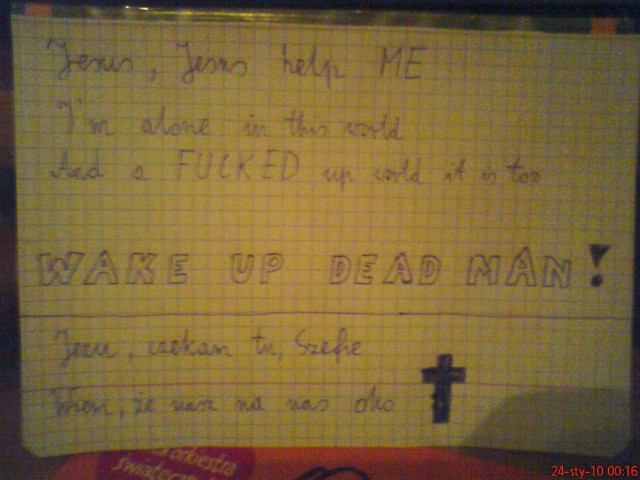 Jesus, Jesus help ME
I'm alone in this world
And a FUCKED up world it is too
WAKE UP DEAD MAN!
Jezu, czekam tu, Szefie
Wiem, że masz na nas oko
orkiestra
świątecz
24-sty-10 00:16